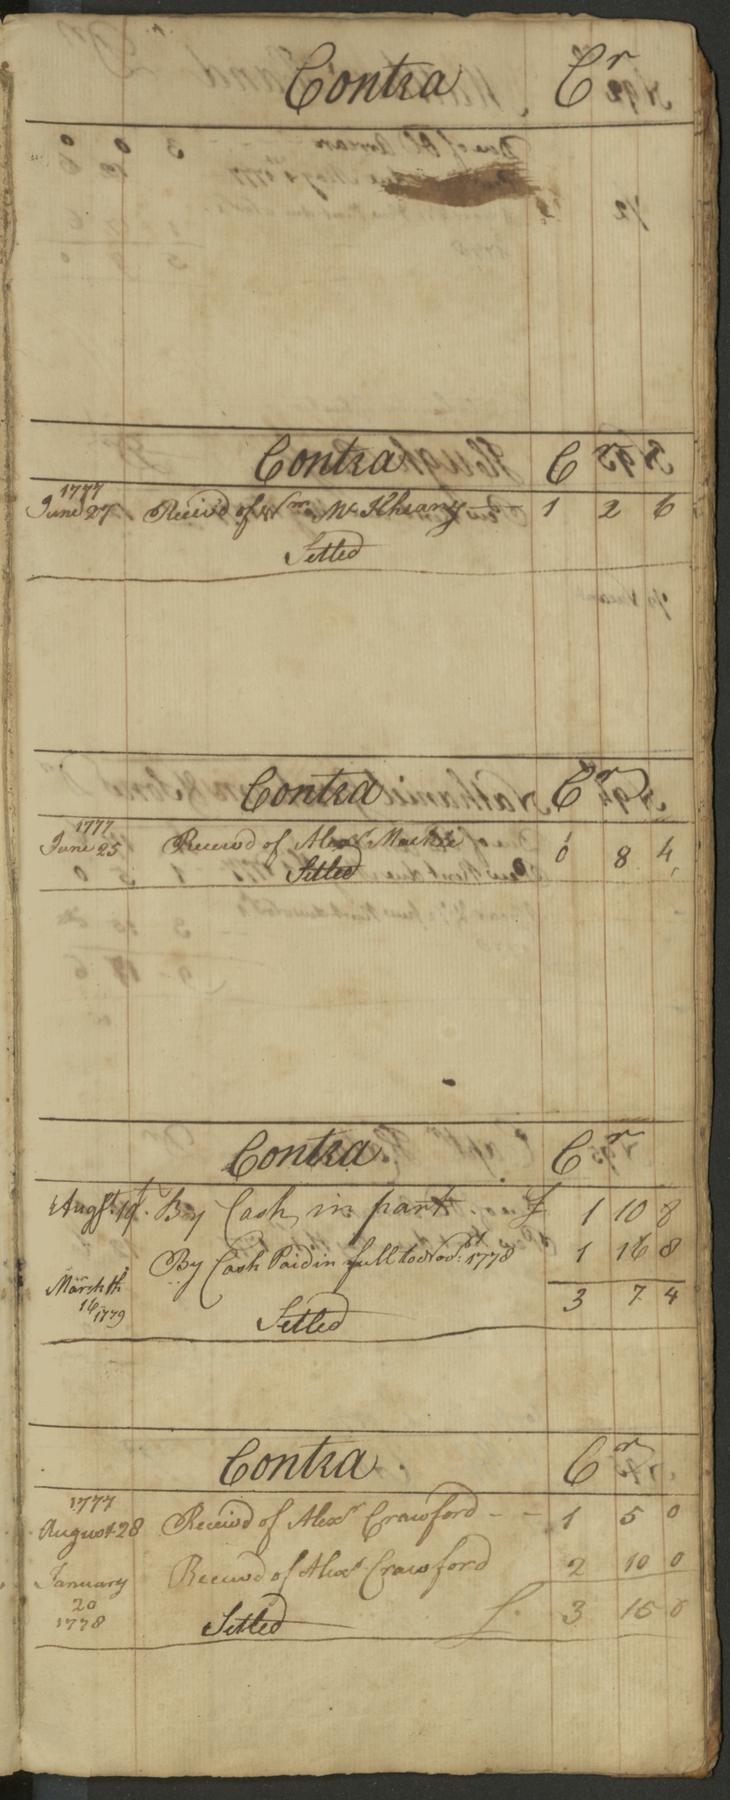 Contra Cr
Contra Cr
1777
June 27 Receivd of Wm Mc 1 2 6
Setled
Contra Cr
1777
June 25 Receivd of Alexr Mackie 0 8 4
Setled
Contra Cr
Augst. 19t. By Cash in part £ 1 10 8
By Cash Paid in full to Novr. 1st 1778 1 16 8
March th
16 1779 3 7 4
Setled
Contra Cr
1777
August 28 Receivd of Alexr Crawford - - 1 5 0
January Receivd of Alexr Crawford 2 10 0
20
1778 Setled £. 3 15 0